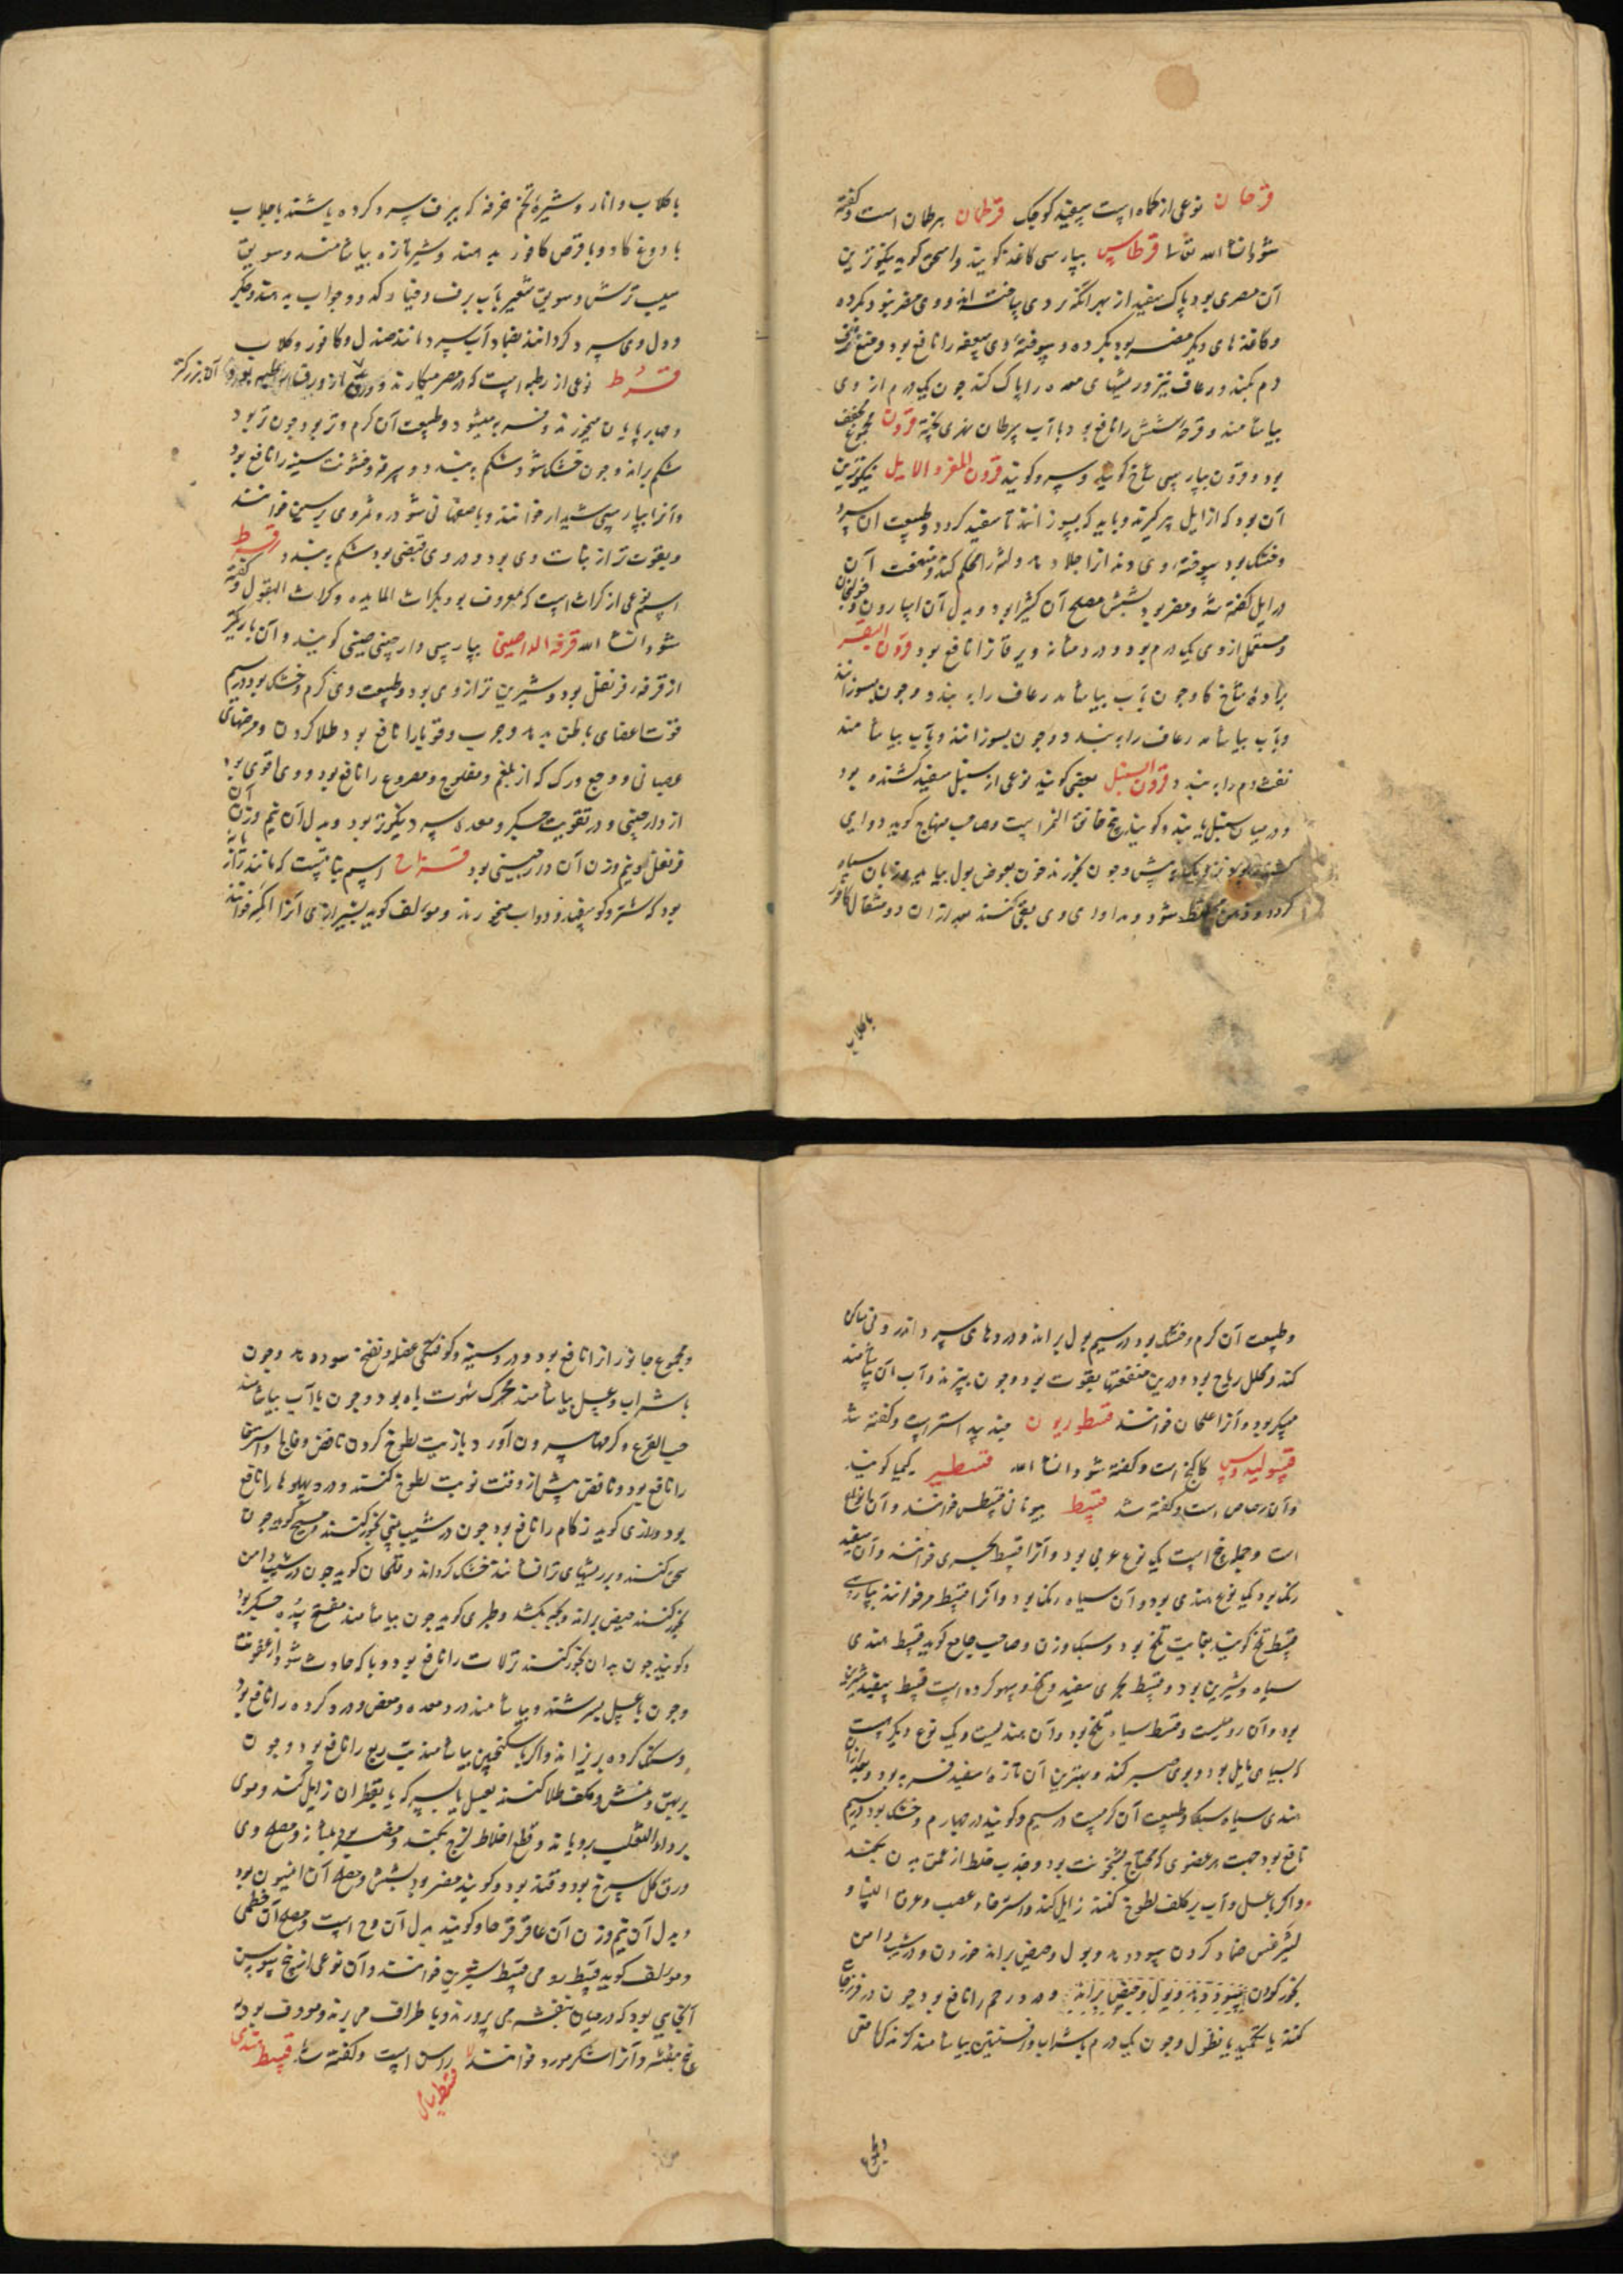 قرحان نوعی از کماه است سپید کوچک قرطمان هرطمان است و گفته
شود انشا الله تعالی قرطاس بپارسی کاغذ گویند و اسحق گوید نیکوترین
آن مصری بود پاک سفید از بهر آنکه از بردی ساخته اند و وی مضر نبود بکرده
و کاغذهای دیگر مضر بود بکرده و سوخته وی سعفه را نافع بود و منع نزف
دم بکند و رعاف نیز و ریشهای معده را پاک کند چون یک درم از وی
بیاشامند و قرحه شش را نافع بود با آب سرطان نهری پخته قرون مجموع مجفف
بود و قرون بپارسی شاخ گویند و سرو گویند قرون المعز و الایل نیکوترین
آن بود که از ایل پیر گیرند و باید که بسوزانند تا سفید گردد و طبیعت آن سرد
و خشک بود سوخته وی دندانرا جلا دهد و لثه را محکم کند و منفعت آن
در ایل گفته شد و مضر بود بشش مصلح آن کثیرا بود و بدل آن اسارون و خولنجان
و مستعمل از وی یک درم بود و درد مثانه و یرقانرا نافع بود قرون البقر
براده شاخ گاو چون بآب بیاشامند رعاف را ببندد و چون بسوزانند
و بآب بیاشامند رعاف را ببندد و چون بسوزانند و بآب بیاشامند
نفث دم را ببندد قرون السنبل بعضی گویند نوعی از سنبل سفید کشنده بود
و در میان سنبل یابند و گویند بیخ خانق النمر است و صاحب منهاج گوید دوایی
کشنده بود نزدیک به بیش و چون بخورند خون بعوض بول بیاید و زبان سیاه
گردد و ذهن مختلط شود و مداوای وی بقی کنند بعد از آن دو مثقال کافور
باگلاب
باگلاب و انار و شیره تخم خرفه که ببرف سرد کرده باشند با جلاب
با دوغ گاو و با قرص کافور بدهند و شیر تازه بیاشامند و سویق
سیب ترش و سویق شعیر بآب برف و خیار و کدو و جواب بدهند و جگر
و دل وی سرد گردانند بضماد آب سرد مانند صندل و کافور و گلاب
قرط نوعی از رطبه است که در مصر میکارند و ورق آن بزرگتر
و چهارپایان میخورند و فربه میشود و طبیعت آن گرم و تر بود چون تر بود
شکم براند و چون خشک شود شکم ببندد و سرفه و خشونت سینه را نافع بود
و آنرا بپارسی شبدار خوانند و باصفهانی شودر و ثمر وی برسیم خوانند
و بقوت تر از نبات وی بود و در وی قبضی بود شکم ببندد قرط
اسم نوعی از کراث است که معروف بود بکراث المایده و کراث البقول و گفته
شود انشا الله قرفه الدارصینی بپارسی دارچینی صینی گویند و آن باریکتر
از قرفه قرنفل بود و شیرین تر از وی بود و طبیعت وی گرم و خشک بود در سیم
قوت اعضای باطن بدهد و جرب و قوبا را نافع بود طلا کردن و مرضهای
عصبانی و وجع ورک که از بلغم و مفلوج و مصروع را نافع بود و وی اقوی بود
از دارچینی و در تقویت جگر و معده سرد نیکوتر بود و بدل آن نیم وزن آن
قرنفل و نیم وزن آن دارچینی بود قسراح اسم نباتیست که مانند تازه
بود که شتر و گوسفند و دواب میخورند و مؤلف گوید بشیرازی آنرا اگر خوانند
و طبیعت آن گرم و خشک بود در سیم بول براند و دردهای سرد اندرونی ساکن
کند و محلل ریاح بود و درین منفعتها بقوت بود و چون بپزند و آب آن بیاشامند
مسکر بود و آنرا علجان خوانند قسطوریون جند بیدستر است و گفته شد
قسولیدوس کاکنج است و گفته شود انشا الله قسطیر کیمیا گویند
و آن رصاص است و گفته شد قسط بیونانی قسطس خوانند و آن انواع
است و جمله بیخ است یک نوع عربی بود و آنرا قسط بحری خوانند و آن سفید
رنگ بود و یک نوع هندی بود و آن سیاه رنگ بود و آنرا قسط مر خوانند بپارسی
قسط تلخ گویند بغایت تلخ بود و سبک وزن و صاحب جامع گوید قسط هندی
سیاه و شیرین بود و قسط بحری سفید و تلخ و سهو کرده است قسط سفید شیرین
بود و آن رومیست و قسط سیاه تلخ بود و آن هندیست و یک نوع دیگر هست
که بسیاهی مایل بود و بوی صبر کند و بهترین آن تازه سفید فربه بود و بعد از آن
هندی سیاه سبک و طبیعت آن گرمست در سیم و گویند در چهارم و خشک بود در سیم
نافع بود جهت هر عضوی که محتاج سخونت بود و جذب خلط از عمق بدن بکند
و اگر با عسل و آب بر کلف لطوخ کنند زایل کند و استرخاء عصب و عرق النسا و
لیثرغس ضماد کردن سود دهد و بول و حیض براند خوردن و در شیب دامن
بخور کردن سود دهد و بول و حیض براند و درد رحم را نافع بود چون در فرزجه
کنند یا تکمید یا نطول و چون یک درم با شراب و افسنتین بیاشامند گزندگی افعی
و مجموع
و مجموع جانوران را نافع بود و درد سینه و کوفتگی عضله و نفخ سود دهد و چون
با شراب و عسل بیاشامند محرک شهوت باه بود و چون با آب بیاشامند
حب القرع و کرمها بیرون آورد و با زیت لطوخ کردن نافض و فالج و استرخا
را نافع بود و نافض پیش از وقت نوبت لطوخ کنند و درد پهلوها را نافع
بود و رازی گوید زکام را نافع بود چون در شیب بینی بخور کنند و مسیح گوید چون
سحق کنند و بر ریشهای تر افشانند خشک گرداند و قلهمان گوید چون در شیب دامن
بخور کنند حیض براند و بچه بکشد و طبری گوید چون بیاشامند مفتح سده جگر بود
و گویند چون بدان بخور کنند نزلات را نافع بود و وبا که حادث شود از عفونت
و چون با عسل بسرشند و بیاشامند درد معده و مغص و درد گرده را نافع بود
و سنگ گرده بریزاند و اگر با سکنجبین بیاشامند تب ربع را نافع بود و چون
بر بهق و نمش و کلف طلا کنند بعسل یا بسرکه یا بقطران زایل کند و موی
بر داء الثعلب برویاند و قطع اخلاط لزج بکند و مضر بود بمثانه و مصلح وی
ورق گل سرخ بود و قند بود و گویند مضر بود بشش و مصلح آن انیسون بود
و بدل آن نیم وزن آن عاقرقرحا و گویند بدل آن وج است و مصلح آن خطمی
و مؤلف گوید قسط رومی قسط شیرین خوانند و آن نوعی از بیخ سوسن
آنجایی بود که در میان بنفشه می پرورند و باطراف می برند و معروف بود به
بیخ بنفشه و آنرا شکرمورد خوانند راس است و گفته شد قسط هندی
قسط شامی